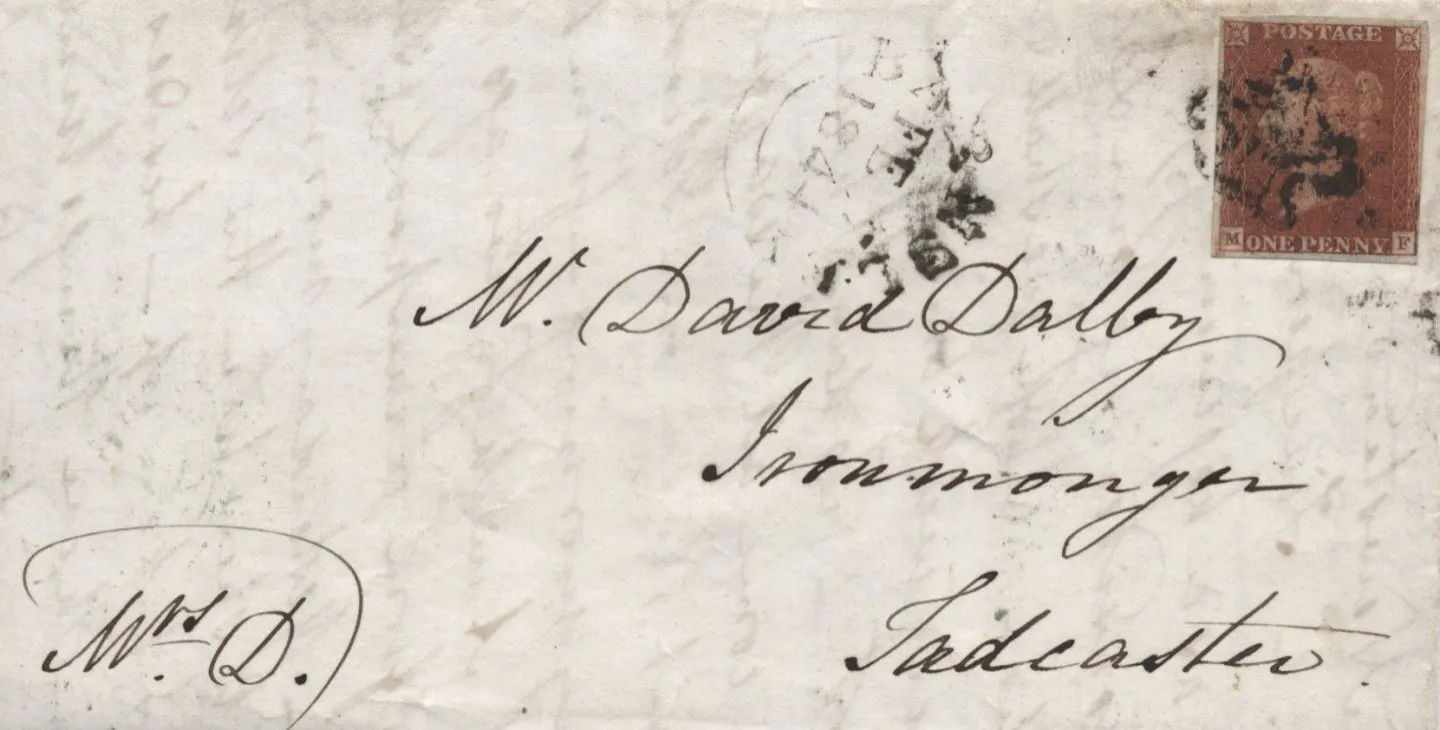 POSTAGE
M ONE PENNY F
184
FE
Mr. David Dalby
Ironmonger
Tadcaster
Mrs. D.